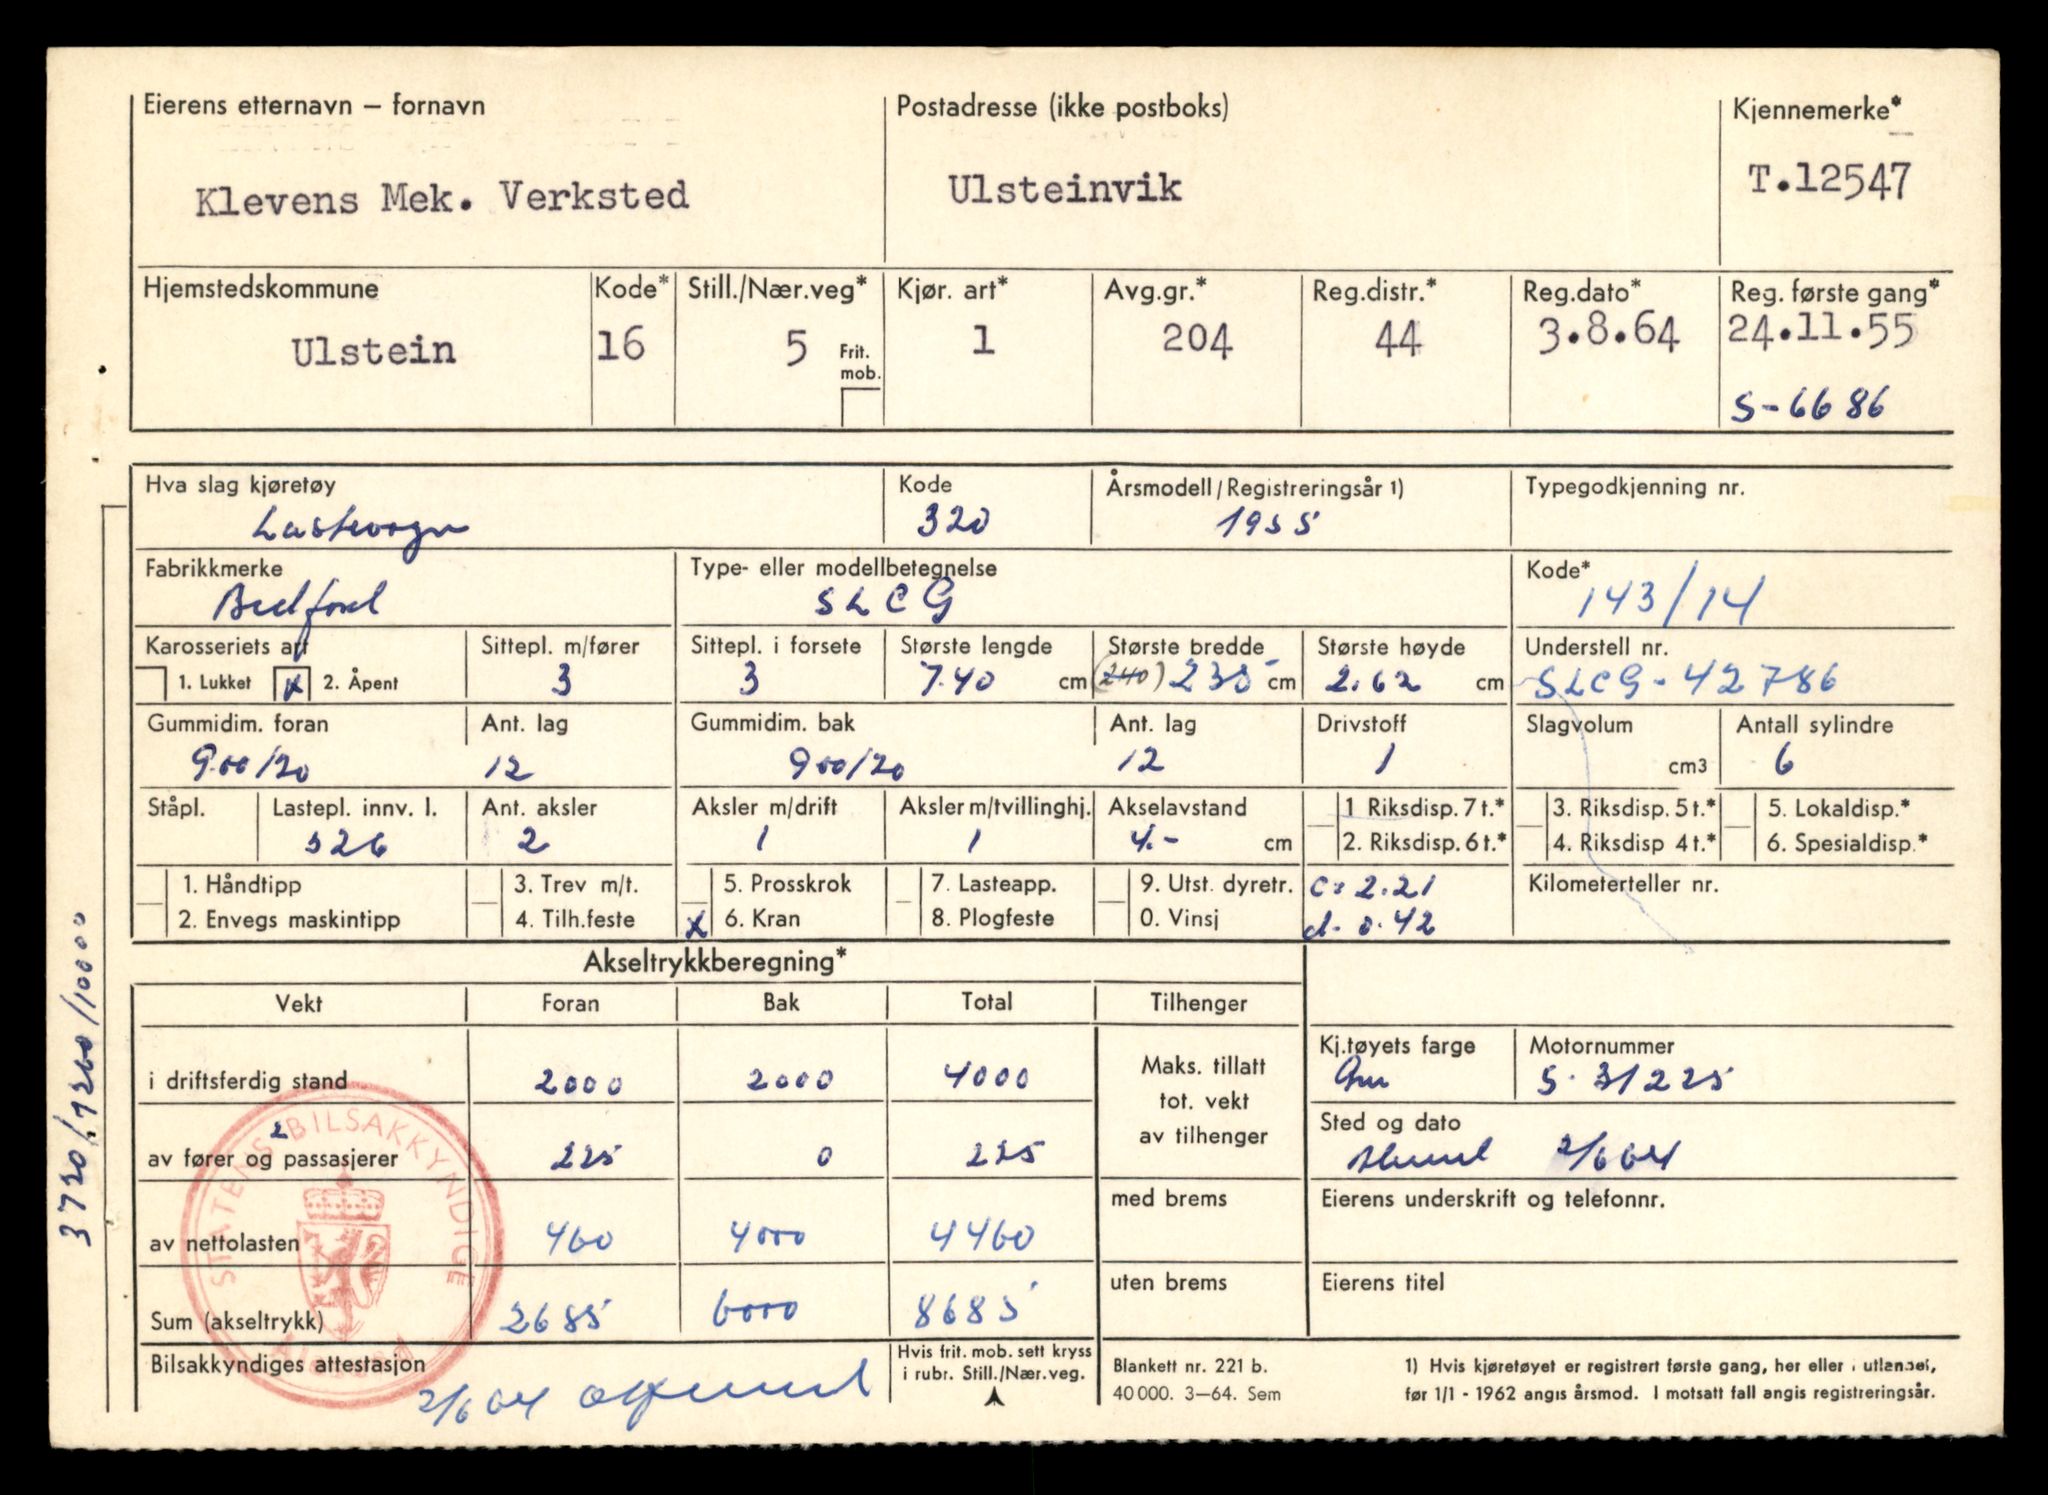 Eierens etternavn – fornavn Postadresse (ikke postboks) Kjennemerke*
Klevens Mek. Verksted Ulsteinvik T.12547
Hjemstedskommune Kode* Still./Nær.veg* Kjør. art* Avg.gr.* Reg.distr.* Reg.dato* Reg. første gang*
Ulstein 16 5 Frit. mob. 1 204 44 3.8.64 24.11.55
S-6686
Hva slag kjøretøy Kode Årsmodell/Registreringsår 1) Typegodkjenning nr.
Lastevogn 320 1955
Fabrikkmerke Type- eller modellbetegnelse Kode*
Bedford SLCG 143/14
Karosseriets art Sittepl. m/fører Sittepl. i forsete Største lengde Største bredde Største høyde Understell nr.
1. Lukket x 2. Åpent 3 3 7.40 cm (240) 235 cm 2.62 cm SLCG-42786
Gummidim. foran Ant. lag Gummidim. bak Ant. lag Drivstoff Slagvolum Antall sylindre
900/20 12 900/20 12 1 cm3 6
Ståpl. Lastepl. innv. l. Ant. aksler Aksler m/drift Aksler m/tvillinghj. Akselavstand 1 Riksdisp. 7 t.* 3. Riksdisp. 5 t.* 5. Lokaldisp.*
526 2 1 1 4.- cm 2. Riksdisp. 6 t.* 4. Riksdisp 4 t.* 6. Spesialdisp.*
1. Håndtipp 3. Trev m/t. 5. Prosskrok 7. Lasteapp. 9. Utst. dyretr. c: 2.21 Kilometerteller nr.
2. Envegs maskintipp 4. Tilh.feste x 6. Kran 8. Plogfeste 0. Vinsj d. 0.42
Akseltrykkberegning*
Vekt Foran Bak Total Tilhenger
i driftsferdig stand 2000 2000 4000
Maks. tillatt
tot. vekt
av tilhenger
Kj.tøyets farge Motornummer
S. 31225
2
av fører og passasjerer 225 0 225
Sted og dato
2/6 64
av nettolasten 460 4000 4460
med brems
Eierens underskrift og telefonnr.
Sum (akseltrykk) 2685 6000 8685
uten brems
Eierens titel
Bilsakkyndiges attestasjon
2/6 64
Hvis frit. mob. sett kryss
i rubr. Still./Nær.veg.
Blankett nr. 221 b.
40 000. 3–64. Sem
1) Hvis kjøretøyet er registrert første gang, her eller i utlandet,
før 1/1 - 1962 angis årsmod. I motsatt fall angis registreringsår.
STATENS BILSAKKYNDIGE
ÅLESUND
3720/7260/10000